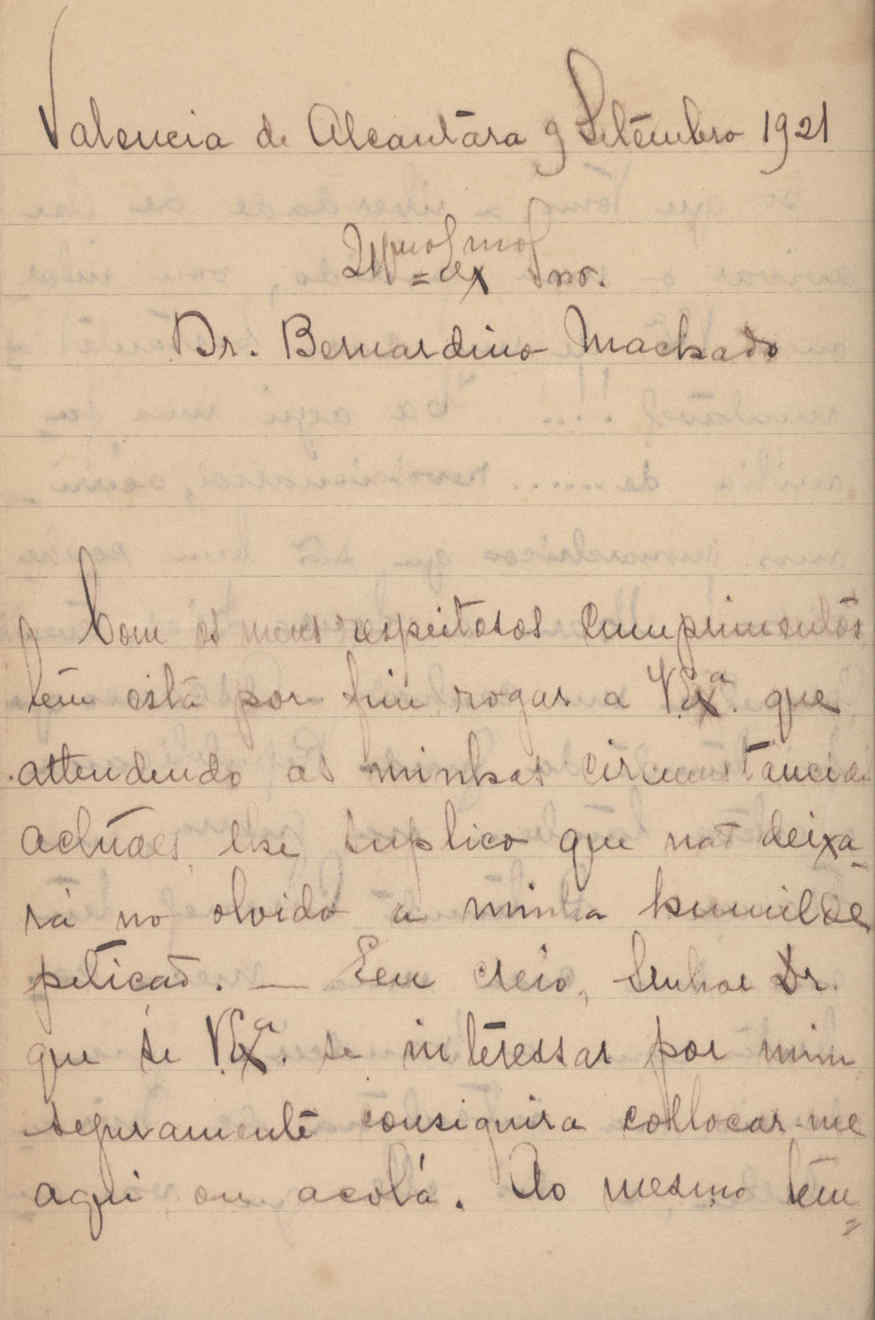 Valencia de Alcantara 9 Setembro 1921
Illmo e Exmo Snr.
Dr. Bernardino Machado
Com os meus respeitosos cumprimentos
tem esta por fim rogar a V. Exª. que
attendendo as minhas circumstancias
actuaes, lhe suplico que não deixa-
rá no olvido a minha humilde
petição. — Eeu creio, Senhor Dr.
que se V. Exª. se interessar por mim
seguramente consiguira collocar-me
aqui ou acolá. Ao mesmo tem=